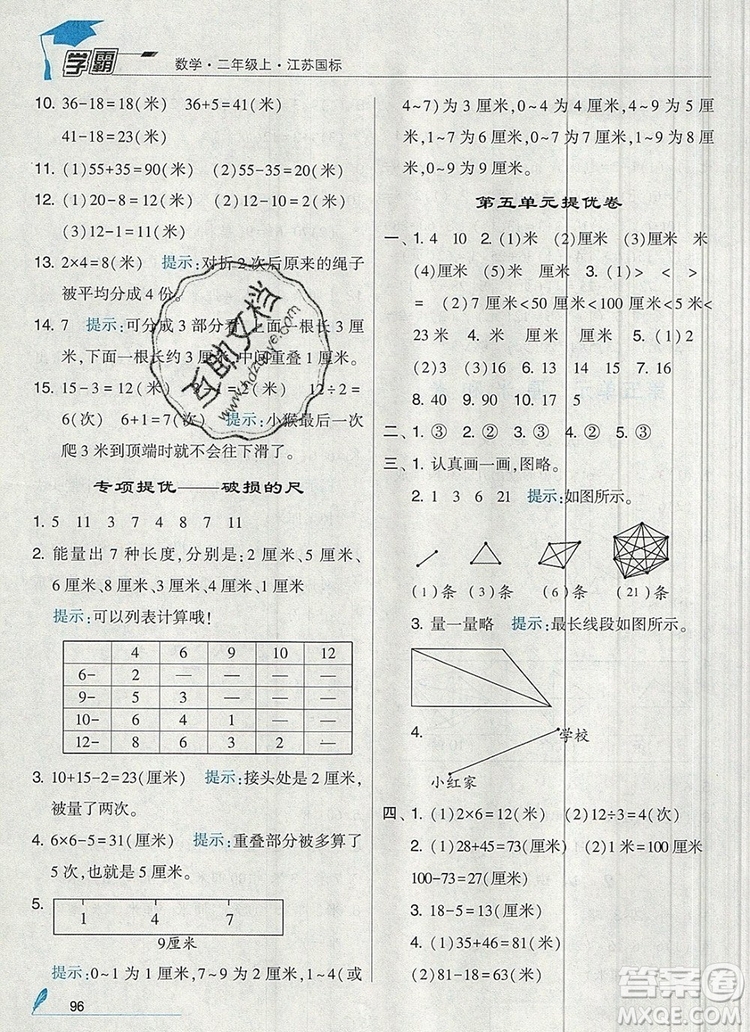 学霸
数学·二年级上·江苏国标
10. 36-18=18(米) 36+5=41(米)
41-18=23(米)
11. (1)55+35=90(米) (2)55-35=20(米)
12. (1)20-8=12(米) (2)12-10=2(米)
(3)12-1=11(米)
13. 2×4=8(米) 提示:对折2次后原来的绳子
被平均分成4份。
14. 7 提示:可分成3部分看,上面一根长3厘
米,下面一根长约3厘米,中间重叠1厘米。
15. 15-3=12(米) 3-1=2(米) 12÷2=
6(次) 6+1=7(次) 提示:小猴最后一次
爬3米到顶端时就不往下滑了。
专项提优——破损的尺
1. 5 11 3 7 4 8 7 11
2. 能量出7种长度,分别是:2厘米、5厘米、
6厘米、8厘米、3厘米、9厘米、1厘米。
提示:可以列表计算哦!
4 6 9 10 12
6- 2 — — — —
9- 5 3 — — —
10- 6 4 1 — —
12- 8 6 3 2 —
3. 10+15-2=23(厘米) 提示:接头处是2厘米,
被量了两次。
4. 6×6-5=31(厘米) 提示:重叠部分被多算了
5次,也就是5厘米。
5.
1 4 7
9厘米
提示:0~1为1厘米,7~9为2厘米,1~4(或
96
4~7)为3厘米,0~4为4厘米,4~9为5厘
米,1~7为6厘米,0~7为7厘米,1~9为8厘
米,0~9为9厘米。
第五单元提优卷
一、1. 4 10 2. (1)米 (2)厘米 (3)厘米
(4)厘米 (5)厘米 3. (1)> < >
= = (2)7厘米<50厘米<100厘米<5米<
23米 4. ④ ① ③ ② 5. (1)2
(2)3 (3)4 6. 13 8 7. 15 16
8. 40 90 9. 5 10. 15
二、1. ③ 2. ② 3. ② 4. ② 5. ③
三、1. 认真画一画,图略。
2. 1 3 6 21 提示:如图所示。
(1)条 (3)条 (6)条 (21)条
3. 量一量略 提示:最长线段如图所示。
4.
学校
小红家
四、1. (1)2×6=12(米) (2)12÷3=4(次)
2. (1)28+45=73(厘米) (2)1米=100厘米
100-73=27(厘米)
3. 18-5-5=8(厘米)
4. (1)23+58=81(厘米)
(2)81-18=63(厘米)
互助文档
www.hdzuoye.com
答案圈
MXQE.COM